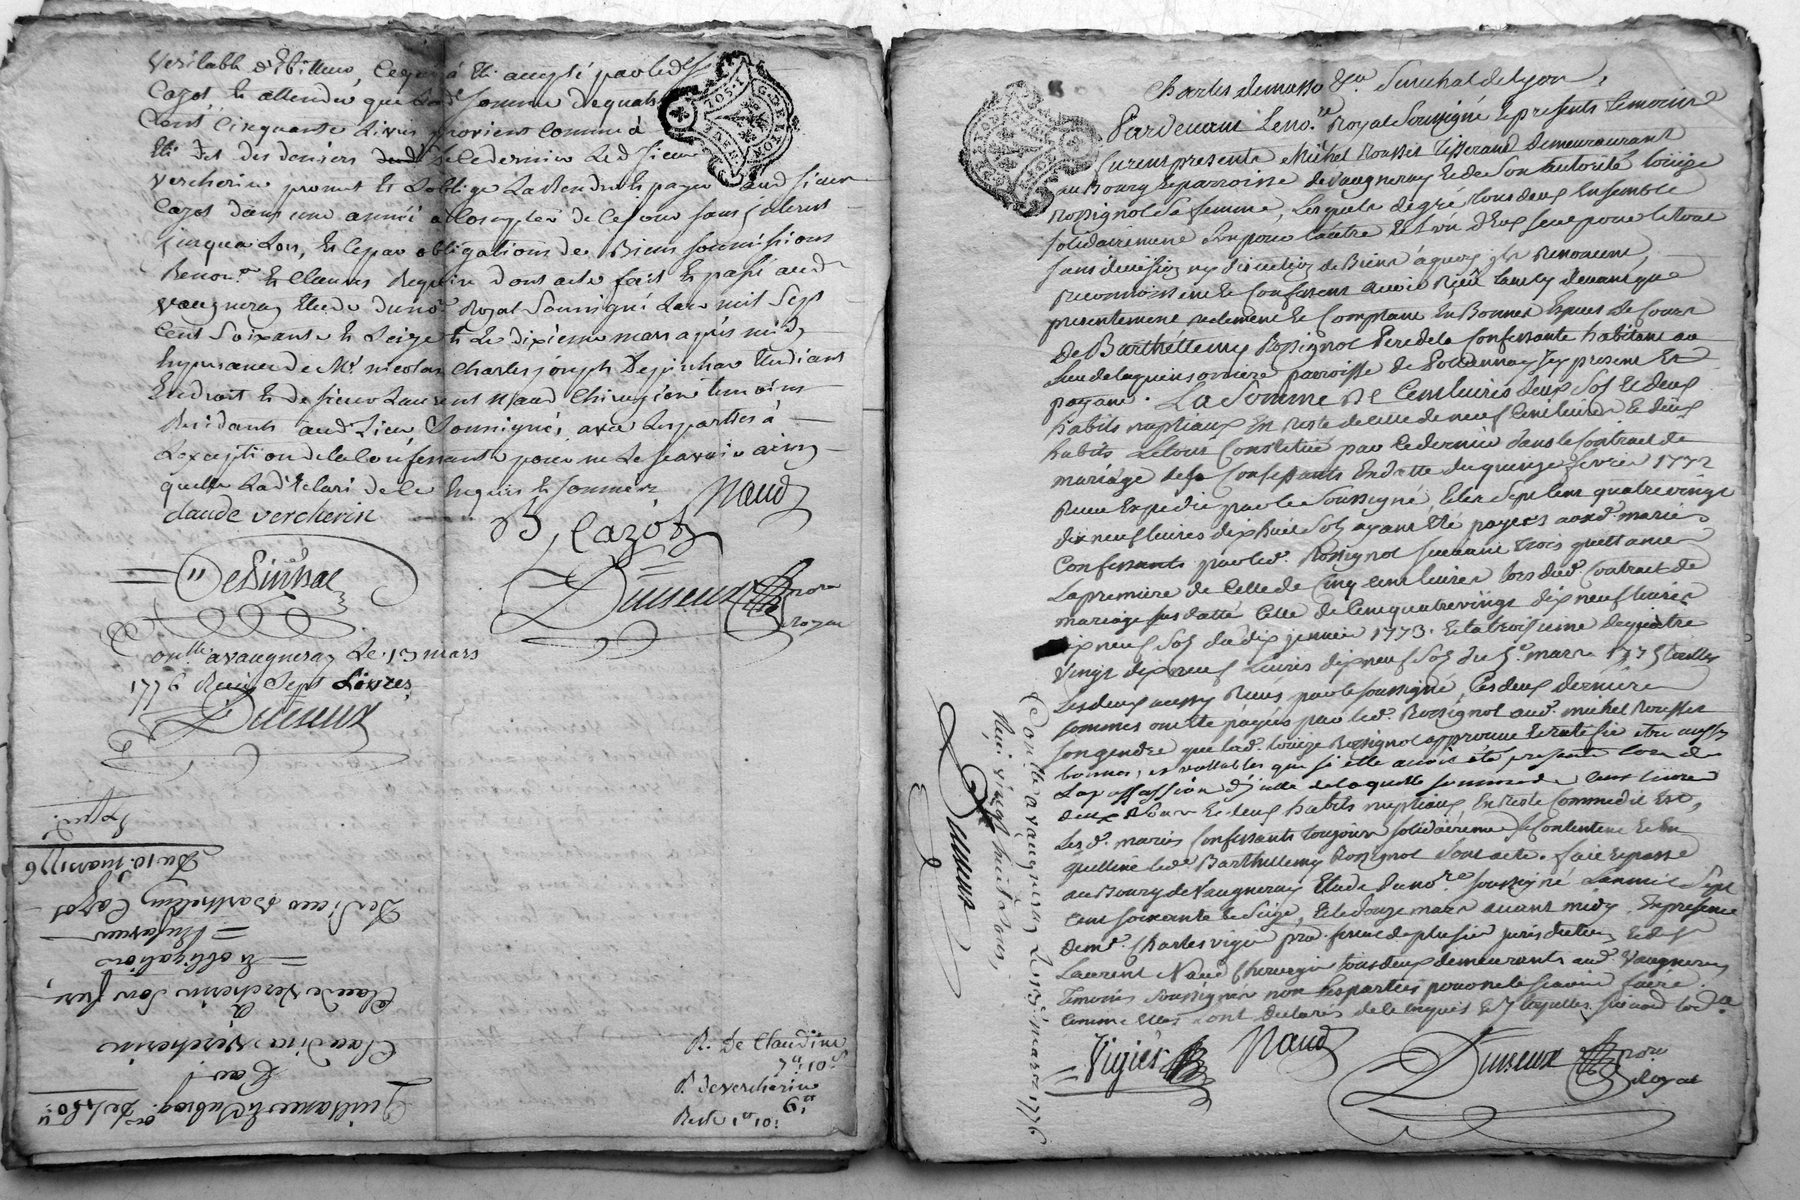 veritable debitteur, ce qui a été accepté par led. Sr
Cazot et attendu que lad. somme de quatre
Cent Cinquante Livres provient comme a
Eté dit des deniers de ce dernier Led. sieur
vercherin promet et s'oblige La Rendre et payer aud sieur
Cazot dans une année a Compter de Ce jour sans jnterest
jusqua Lors, Et ce par obligations de Biens soumissions
Renon.on Et Clauses Requises dont acte fait Et passé aud
vaugneray Etude du no.re Royal Soussigné L'an mil Sept
Cent Soixante Et Seize Et Le dixieme mars après midy
En presence de Mr. nicolas Charles joseph Etudiant
En droit Et de sieur Laurent Naud Chirurgien temoins
Residants aud. Lieu Soussignés avec Les parties à
L'exception de la Confessante pour ne Le sçavoir ainsy
quelle La declaré de ce Enquise Et sommée
claude vercherin
Naud
B, Cazot
DeSinhac
Duseux no.re royal
Con.llé a vaugneray Le 13 mars
1776 Reçu Sept Livres
Duseux
R. De Claudine
7.ll 10.s
R. de vercherin
6.ll
Reste 1.ll 10.s
Quittance de 450.ll
Par
Claudine Vercherin
à
Claude Vercherin Son frere
Et obligation
En faveur
De Sieur Barthelemy Cazot
Du 10 mars 1776
Exped.
Charles demasso Sénéchal de Lyon,
Pardevant Le no.re Royal Soussigné Et presents temoins
furent presents Michel Rousset Tisserand demeurant
au Bourg Et parroisse de Vaugneray Et de Son autorité Louise
Rossignol Sa femme, Lesquels de gré tous deux Ensemble
solidairement L'un pour L'autre Et L'un d'Eux seul pour le tout
sans division ny discution de Biens à quoy ils Renoncent,
reconnoissent Et Confessent avoir Reçu tant cy devant que
presentement reelement Et Comptant En Bonnes Especes de Cours
De Barthellemy Rossignol Pere de la Confessante habitant au
Lieu de parroisse de Pollionnay Jcy present Et
payant. La Somme De Cent Livres deux Sols Et deux
habits nuptiaux En reste de celle de neuf Cent Livres Et deux
habits Le tout Constitué par Ce dernier dans le Contrat de
mariage des Confessants En datte du quinze fevrier 1772
Reçu Expedié par le Soussigné, Les Sept Cent quatre vingt
dix neuf Livres dix huit Sols ayant Eté payés auxd. mariés
Confessants par led. Rossignol suivant trois quittances
La premiere de Celle de Cinq Cent Livres Lors dud. Contrat de
mariage sus datté Celle de Cent quatre vingt dix neuf Livres
dix neuf Sols du dix janvier 1773. Et la troisieme de quatre
Vingt dix neuf Livres dix neuf Sols du 5.e mars 1775
Les deux aussy Reçues par le soussigné, Ces deux dernieres
sommes ont Eté payées par led. Rossignol aud. michel Rousset
son gendre que lad. Louise Rossignol approuve Et ratifie Etre aussy
bonnes, et vallables que si elle avoit été presente Lors de
La passation d'jcelle de laquelle somme de Cent Livres
deux Sols Et deux habits nuptiaux En reste Comme dit Est,
Les d. mariés Confessants toujours solidairement se Contentent Et En
quittent led. Barthellemy Rossignol dont acte. fait Et passé
au Bourg de Vaugneray Etude du no.re soussigné L'an mil Sept
Cent soixante Et Seize, Et le douze mars avant midy, En presence
de m.e Charles vigier prat. fermier de plusieurs jurisdictions Et de Sr
Laurent Naud Chirurgien tous deux demeurants aud. Vaugneray
temoins Soussignés non Les parties pour ne le sçavoir faire
Comme Elles L'ont declaré de ce Enquises Et
Vigier
Naud
Duseux no.re royal
Con.llé a vaugneray Le 13 mars 1776
Reçu vingt huit sous,
Duseux